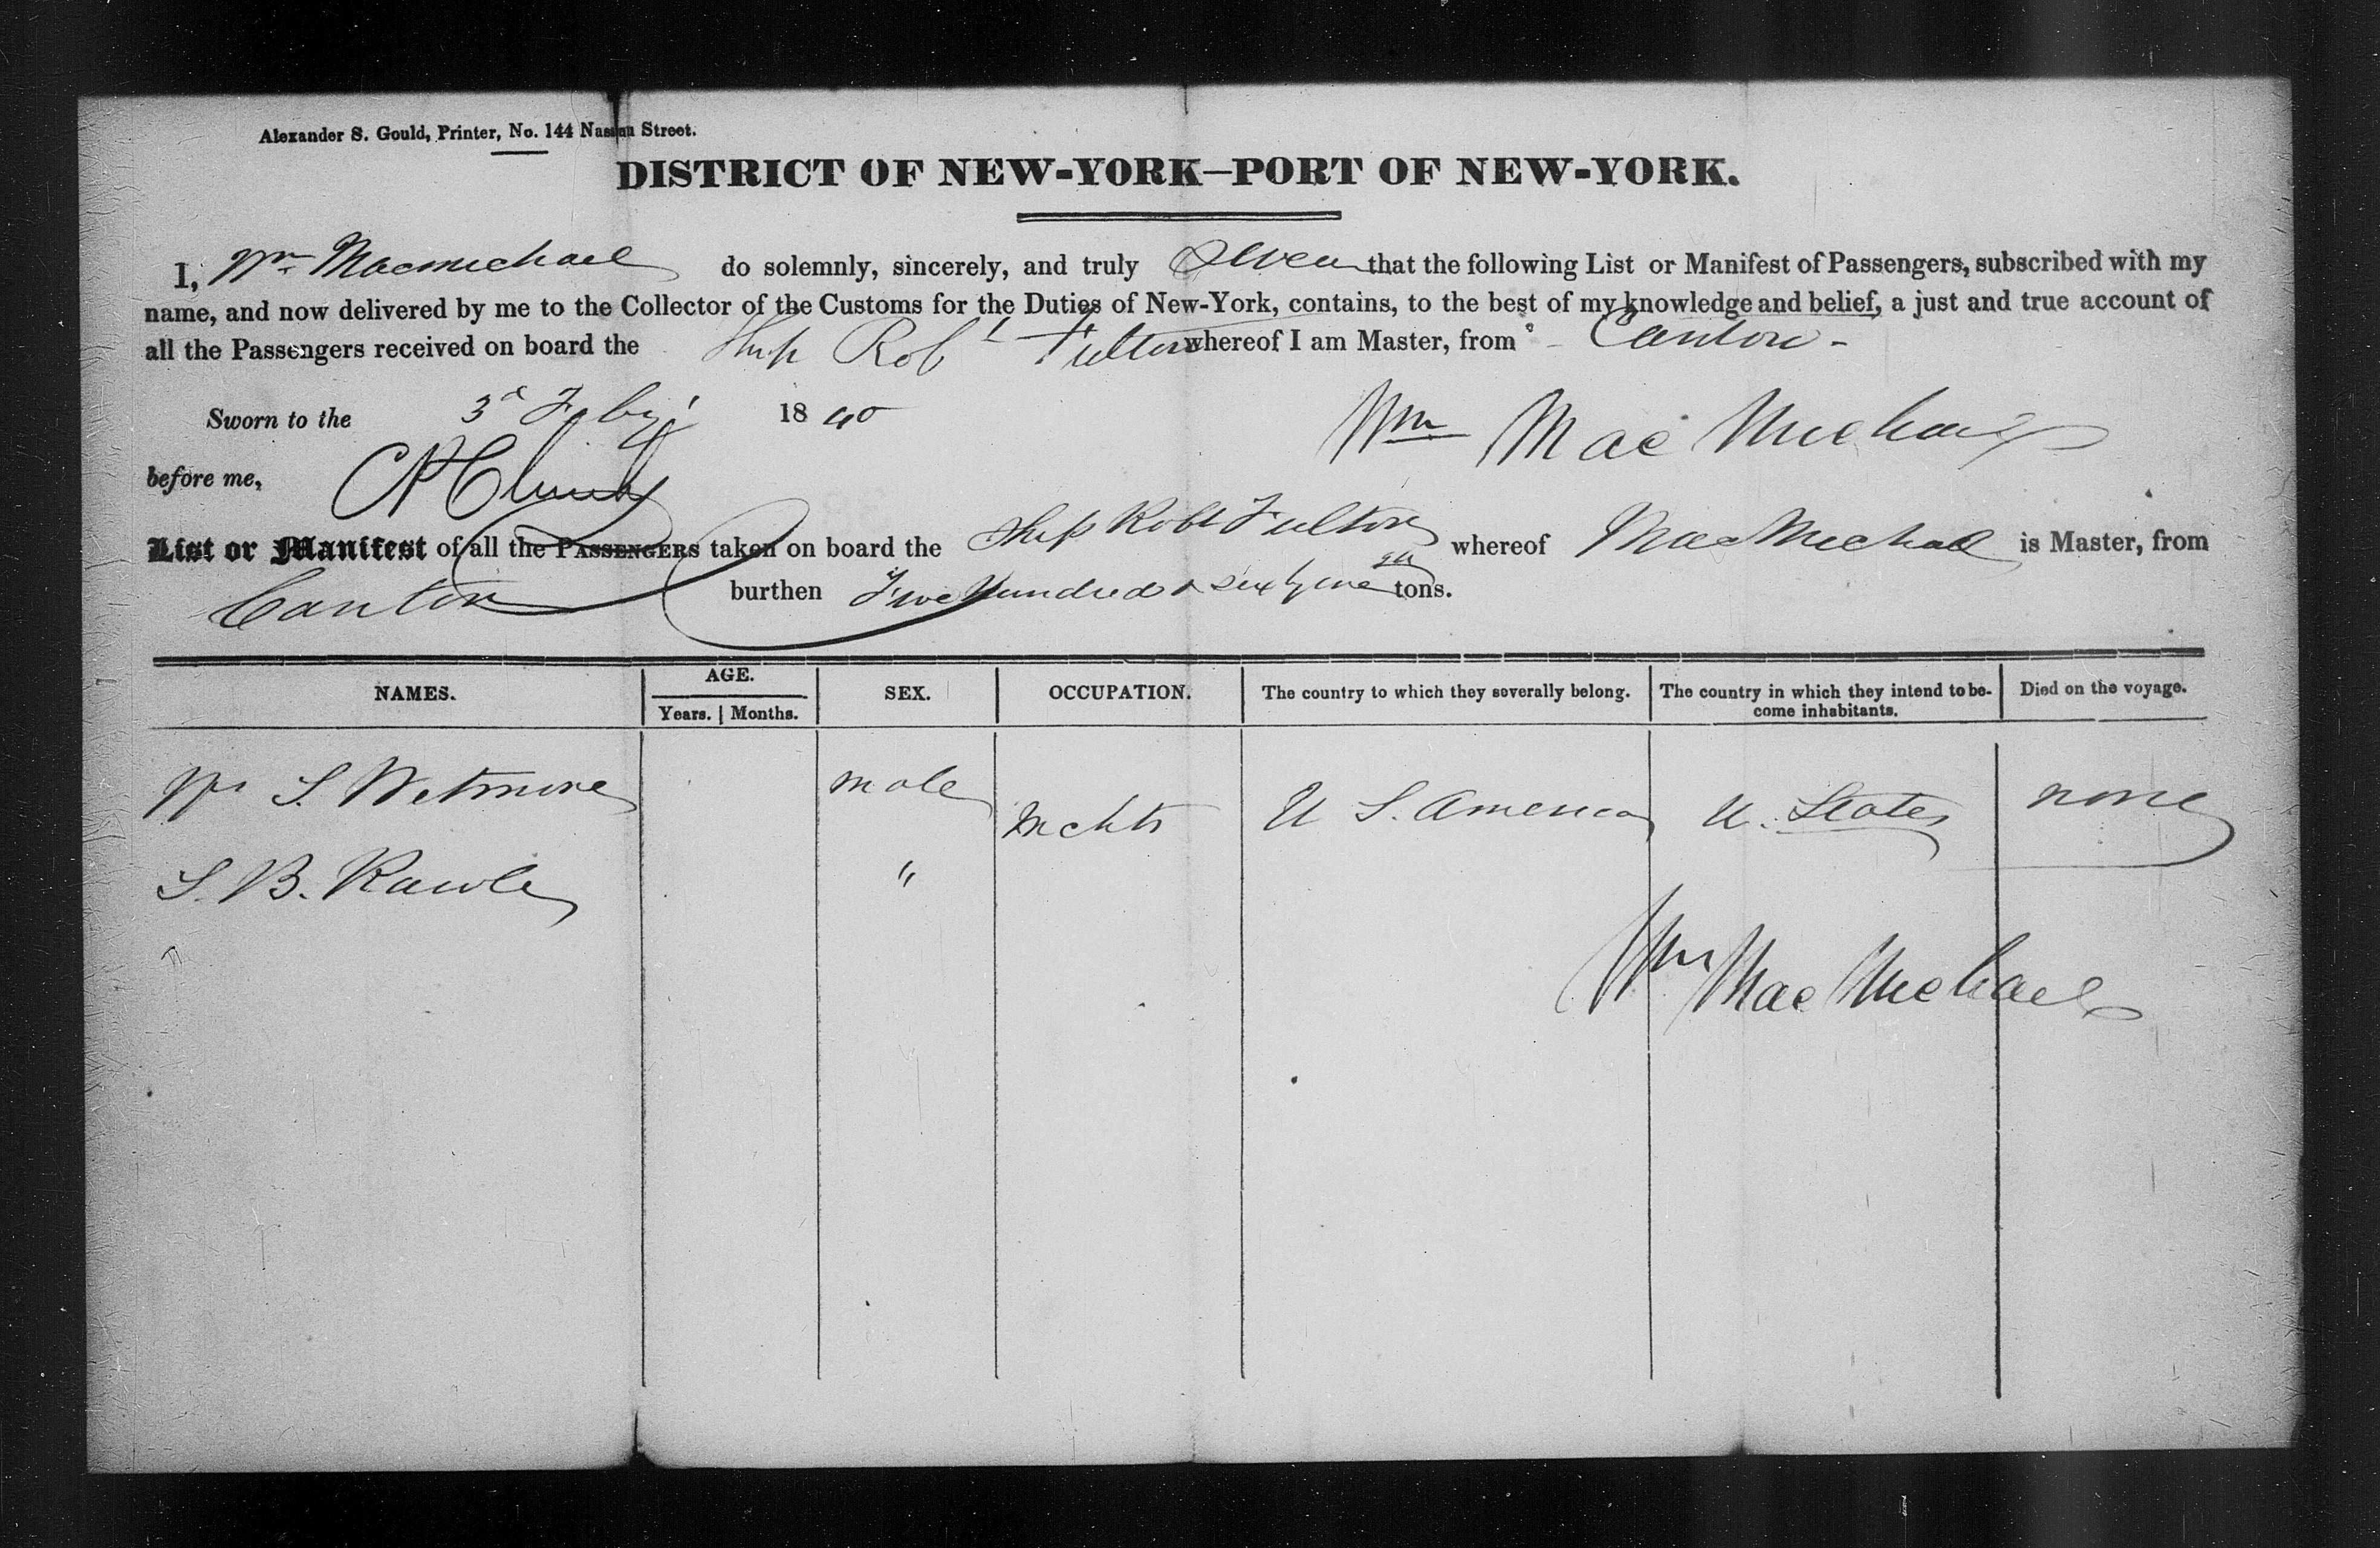 Alexander S. Gould, Printer, No. 144 Nassau Street.
DISTRICT OF NEW-YORK—PORT OF NEW-YORK.
I, Wm Macmichael do solemnly, sincerely, and truly Swear that the following List or Manifest of Passengers, subscribed with my
name, and now delivered by me to the Collector of the Customs for the Duties of New-York, contains, to the best of my knowledge and belief, a just and true account of
all the Passengers received on board the Ship Robt Fulton whereof I am Master, from Canton -
Sworn to the 3d Feby 1840
Wm Mac Michael
before me,
List or Manifest of all the PASSENGERS taken on board the Ship Robt Fulton whereof MacMichael is Master, from
Canton burthen Five Hundred & sixty one tons.
NAMES. AGE. Years. | Months. SEX. OCCUPATION. The country to which they severally belong. The country in which they intend to be-come inhabitants. Died on the voyage.
W S. Wetmore male Mchts U S. America U. States none
S. B. Rawle "
Wm Mac Michael